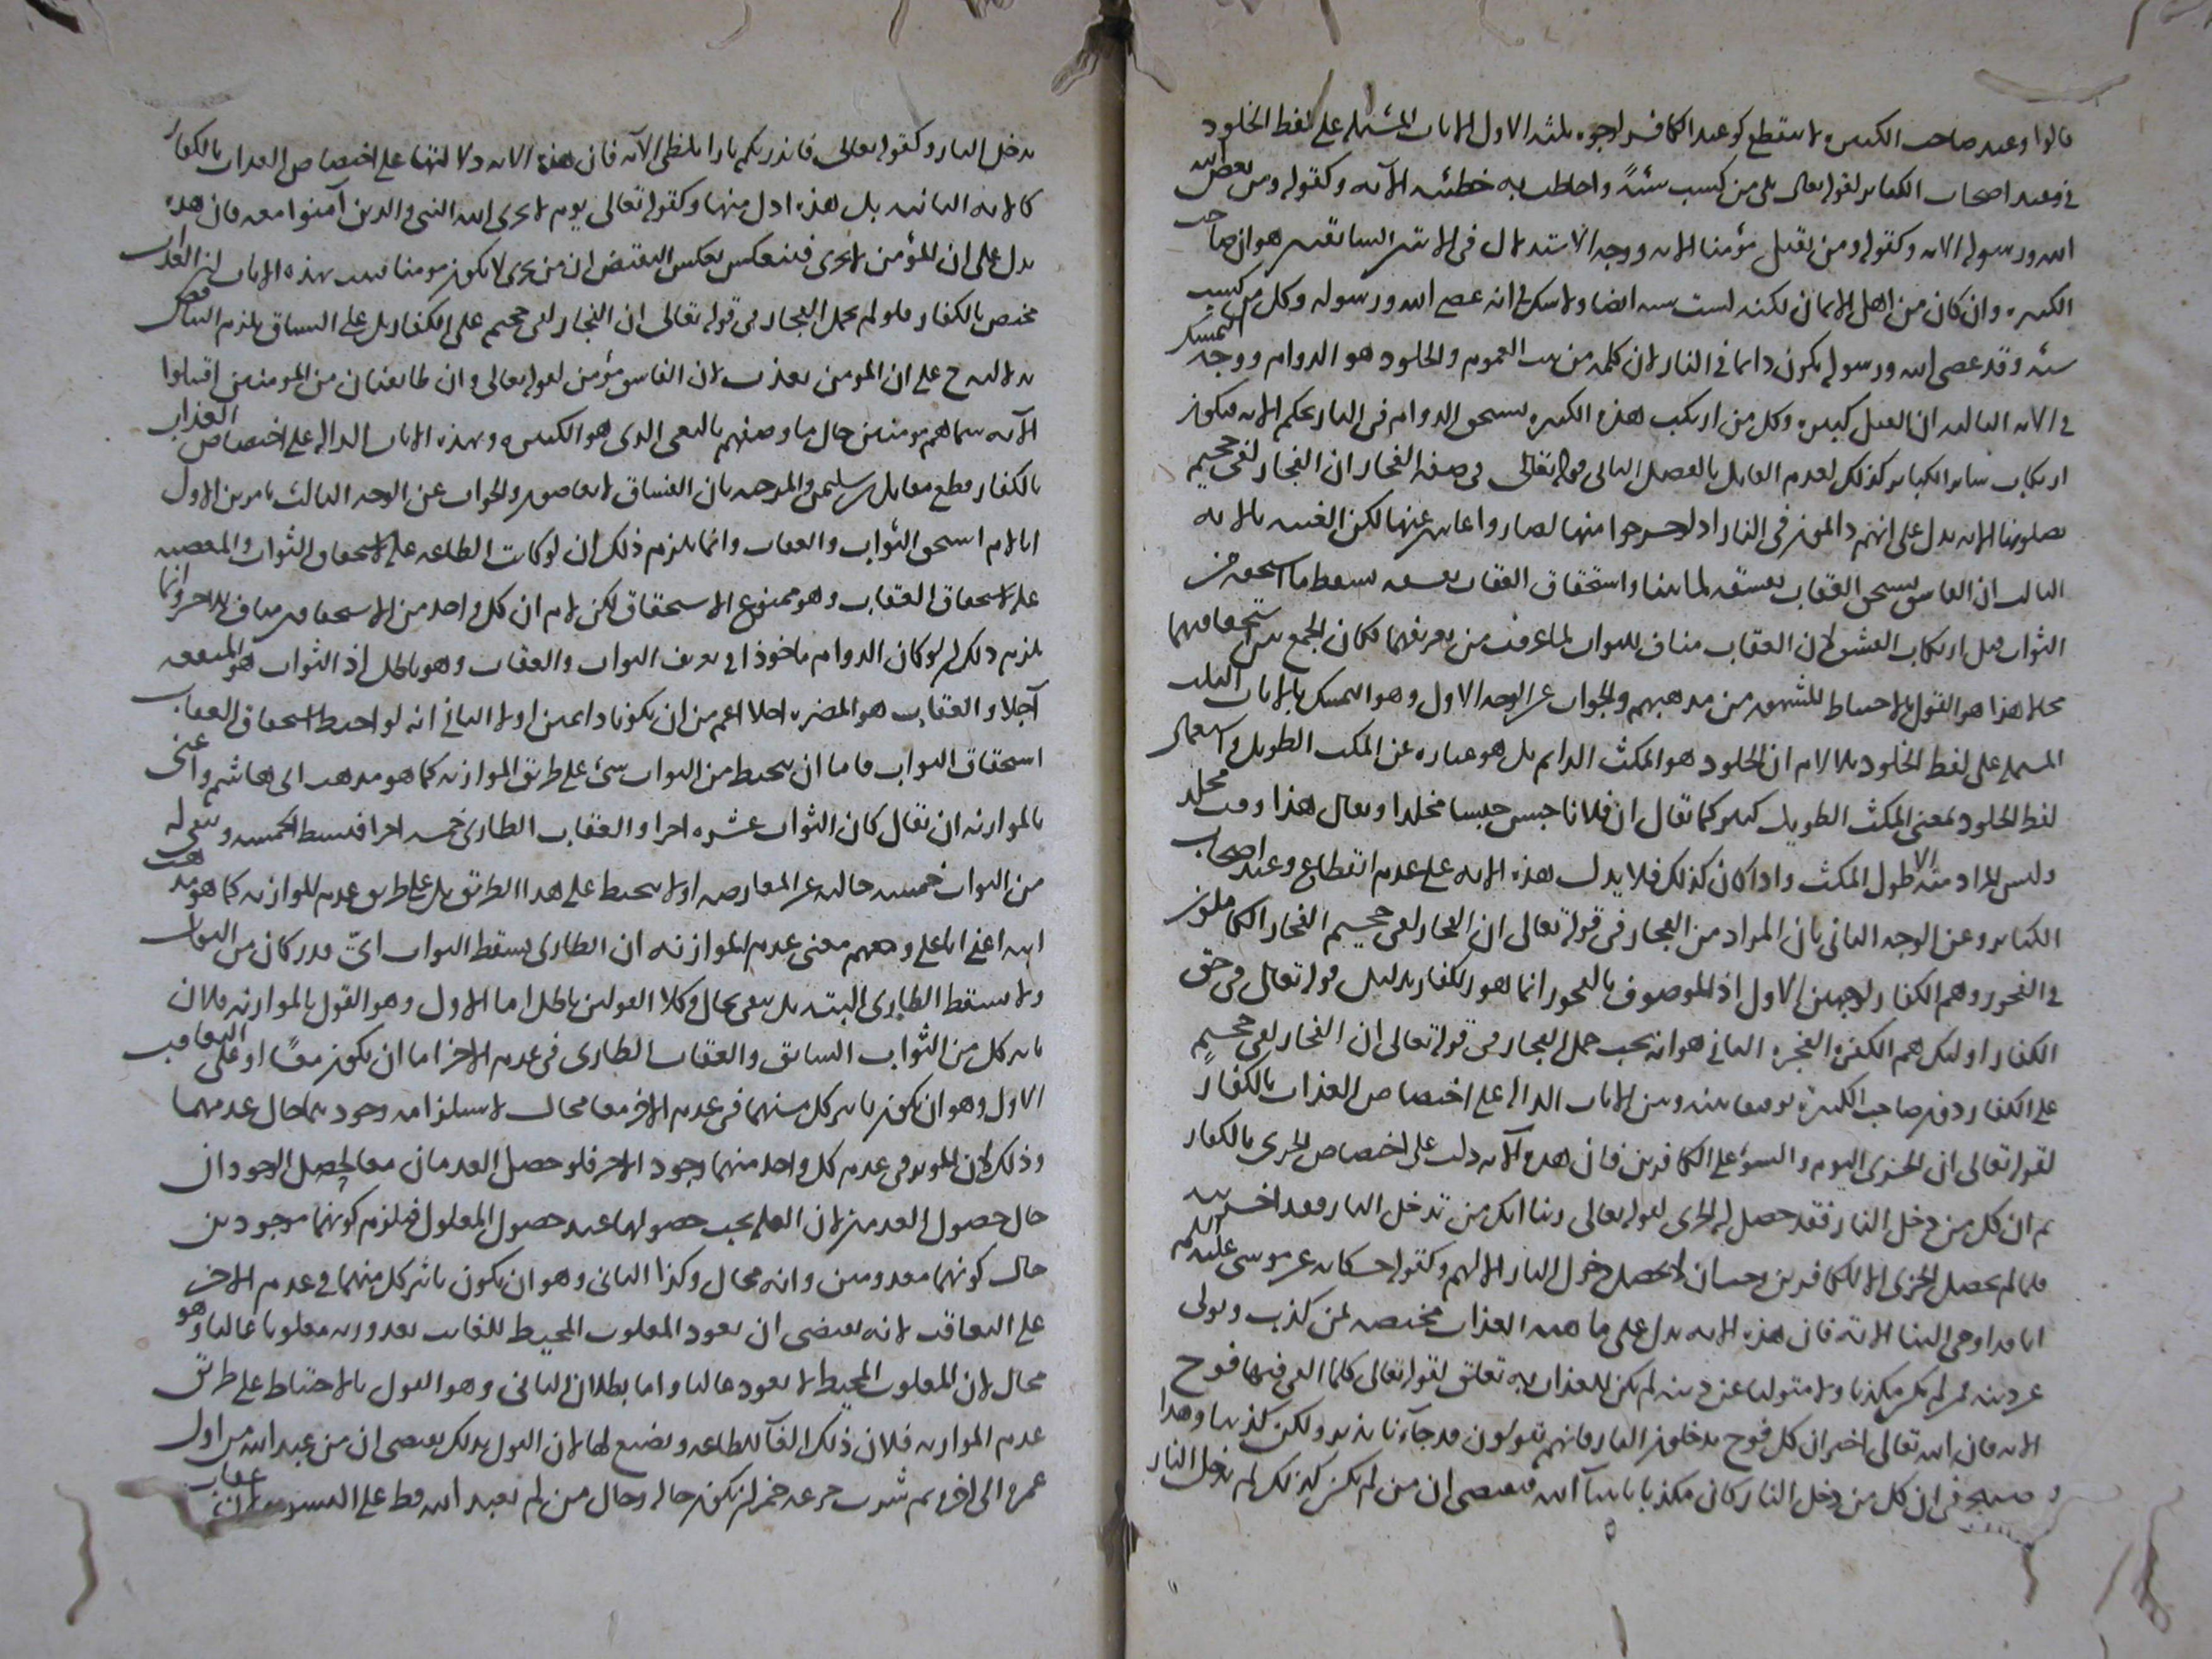 قالوا وعيد صاحب الكبيرة لا ينقطع كوعيد الكافر لوجوه ثلثة الاول الايات المشتملة على لفظ الخلود
في وعيد اصحاب الكبائر لقوله تعالى بلى من كسب سيئة واحاطت به خطيئته الآية وكقوله ومن يعص الله
الله ورسوله الاية وكقوله ومن يقتل مؤمنا الاية ووجه الاستدلال في الايتين السابقتين هو ان صاحب
الكبيرة وان كان من اهل الايمان لكنه كسب سيئة ايضا ولا شك في انه عصى الله ورسوله وكل من كسب
سيئة وقد عصى الله ورسوله يكون دائما في النار لان كلمة من للعموم والخلود هو الدوام ووجه التمسك
في الاية الثالثة ان القتل كبيرة وكل من ارتكب هذه الكبيرة يستحق الدوام في النار بحكم الاية فيكون
ارتكاب سائر الكبائر كذلك لعدم القائل بالفصل الثاني قوله تعالى في صفة الفجار ان الفجار لفي جحيم
يصلونها الاية يدل على انهم دائمون في النار اذ لو خرجوا منها لصاروا غائبين عنها لكن الغيبة بالاية
الثالث ان الفاسق يستحق العقاب بفسقه لما بينا واستحقاق العقاب بفسقه يسقط ما استحقه من
الثواب قبل ارتكاب الفسق لان العقاب مناف للثواب لما عرفت من تعريفهما فكان الجمع بين استحقاقهما
محالا هذا هو القول بالاحباط المشهور من مذهبهم والجواب عن الوجه الاول وهو التمسك بالايات الثلث
المشتملة على لفظ الخلود بلا لانم ان الخلود هو المكث الدائم بل هو عبارة عن المكث الطويل واستعمال
لفظ الخلود بمعنى المكث الطويل كثير كما يقال ان فلانا حبس حبسا مخلدا ويقال هذا وقف مخلد
وليس المراد منه الا طول المكث واذا كان كذلك فلا يدل هذه الاية على عدم انقطاع وعيد اصحاب
الكبائر وعن الوجه الثاني بان المراد من الفجار في قوله تعالى ان الفجار لفي جحيم الفجار الكاملون
في الفجور وهم الكفار لوجهين الاول اذ الموصوف بالفجور انما هو الكفار بدليل قوله تعالى في حق
الكفار اولئك هم الكفرة الفجرة الثاني هو انه يجب حمل الفجار في قوله تعالى ان الفجار لفي جحيم
على الكفار دون صاحب الكبيرة توفيقا بينه وبين الايات الدالة على اختصاص العذاب بالكفار
لقوله تعالى ان الخزي اليوم والسوء على الكافرين فان هذه الآية دلت على اختصاص الخزي بالكفار
ثم ان كل من دخل النار فقد حصل له الخزي لقوله تعالى ربنا انك من تدخل النار فقد اخزيته
فلما لم يحصل الخزي الا للكافرين وجب ان لا يحصل دخول النار الا لهم وكقوله حكاية عن موسى عليه السلم
انا قد اوحي الينا الاية فان هذه الاية يدل على ماهية العذاب مختصة بمن كذب وتولى
عن دينه فمن لم يكن مكذبا ولا متوليا عن دينه لم يكن للعذاب به تعلق لقوله تعالى كلما القي فيها فوج
الاية فان الله تعالى اخبر ان كل فوج يدخلون النار فانهم يقولون قد جاءنا نذير ولكن كذبنا وهذا
صريح في ان كل من دخل النار كان مكذبا بانبياء الله فيقتضي ان من لم يكن كذلك لم يدخل النار
يدخل النار وكقوله تعالى فانذرتكم نارا تلظى الآية فان هذه الاية دلالتها على اختصاص العذاب بالكفار
كالاية الثانية بل هذه ادل منها وكقوله تعالى يوم لا يخزي الله النبي والذين آمنوا معه فان هذه
يدل على ان المؤمن لا يخزى فينعكس بعكس النقيض ان من يخزى لا يكون مومنا فثبت بهذه الايات ان العذاب
مختص بالكفار فلو لم يحمل الفجار في قوله تعالى ان الفجار لفي جحيم على الكفار بل على الفساق يلزم التناقض
بدلالته ح على ان المومن يعذب لان الفاسق مؤمن لقوله تعالى وان طائفتان من المومنين اقتتلوا
الآية سماهم مومنين حال ما وصفهم بالبغي الذي هو الكبيرة وبهذه الايات الدالة على اختصاص العذاب
بالكفار قطع مقاتل بن سليمن والمرجئة بان الفساق لا يعاقبون والجواب عن الوجه الثالث بامرين الاول
انا لانم استحق الثواب والعقاب وانما يلزم ذلك ان لو كانت الطاعة علة لاستحقاق الثواب والمعصية
علة لاستحقاق العقاب وهو ممنوع الاستحقاق لكن لانم ان كل واحد من الاستحقاقين مناف للاخر وانما
يلزم ذلك ان لو كان الدوام ماخوذا في تعريف الثواب والعقاب وهو باطل اذ الثواب هو المنفعة
آجلا والعقاب هو المضرة اجلا اعم من ان يكونا دائمين او لا الثاني انه لو احبط استحقاق العقاب
استحقاق الثواب فاما ان يحبط من الثواب شئ على طريق الموازنة كما هو مذهب ابي هاشم واعني
بالموازنة ان يقال كان الثواب عشرة اجزا والعقاب الطارى خمسة اجزا فيسقط الخمسة ويبقى له
من الثواب خمسة خالية عن المعارضة او لا يحبط على هذا الطريق بل على طريق عدم الموازنة كما هو مذهب
ابيه اعني ابا علي ومعهم معنى عدم الموازنة ان الطارى يسقط الثواب اي قدر كان من الثواب
ولا يسقط الطارى البتة بل يبقى بحاله وكلا القولين باطل اما الاول وهو القول بالموازنة فلان
تاثير كل من الثواب السابق والعقاب الطارى في عدم الاخر اما ان يكون معا او على التعاقب
الاول وهو ان يكون تاثير كل منهما في عدم الاخر معا محال لاستلزامه وجودهما حال عدمهما
وذلك لان المؤثر في عدم كل واحد منهما وجود الاخر فلو حصل العدمان معا لحصل الوجودان
حال حصول العدمين لان العلة يجب حصولها عند حصول المعلول فيلزم كونهما موجودين
حال كونهما معدومين وانه محال وكذا الثاني وهو ان يكون تاثير كل منهما في عدم الاخر
على التعاقب لانه يقتضي ان يعود المغلوب المحبط للغالب بعد وروده مغلوبا غالبا وهو
محال لان المغلوب المحبط لا يعود غالبا واما بطلان الثاني وهو القول بالاحتباط على طريق
عدم الموازنة فلان ذلك الغآ للطاعة وتضييع لها لان القول بذلك يقتضي ان من عبد الله من اول
عمره الى اخره ثم شرب جرعة خمر ان يكون حاله وحال من لم يعبد الله قط على السوية